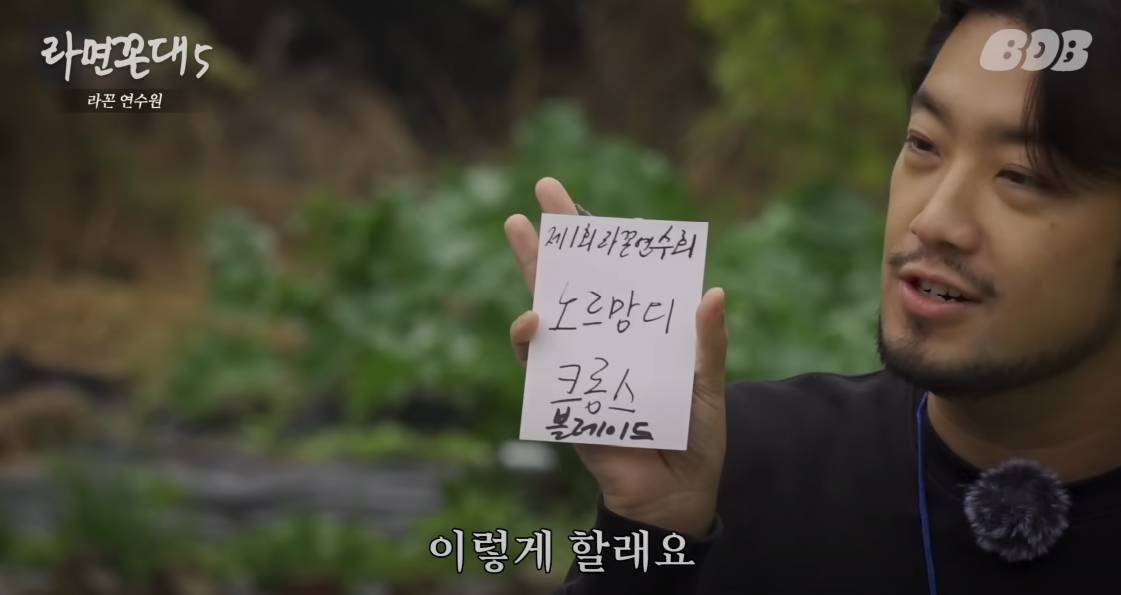 라면꼰대5
라꼰 연수원
BDB
제1회라꼰연수회
노르망디
크롱스
블레이드
이렇게 할래요